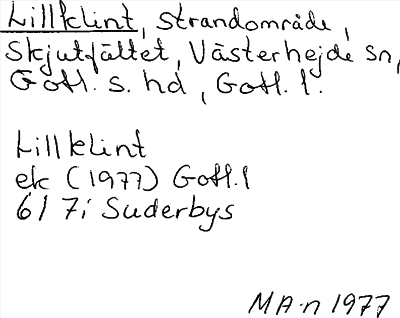 Lillklint, strandområde,
Skjutfältet, Västerhejde sn,
Gotl. s. hd, Gotl. l.
Lillklint
ek (1977) Gotl. l
6I 7i Suderbys
MA-n 1977